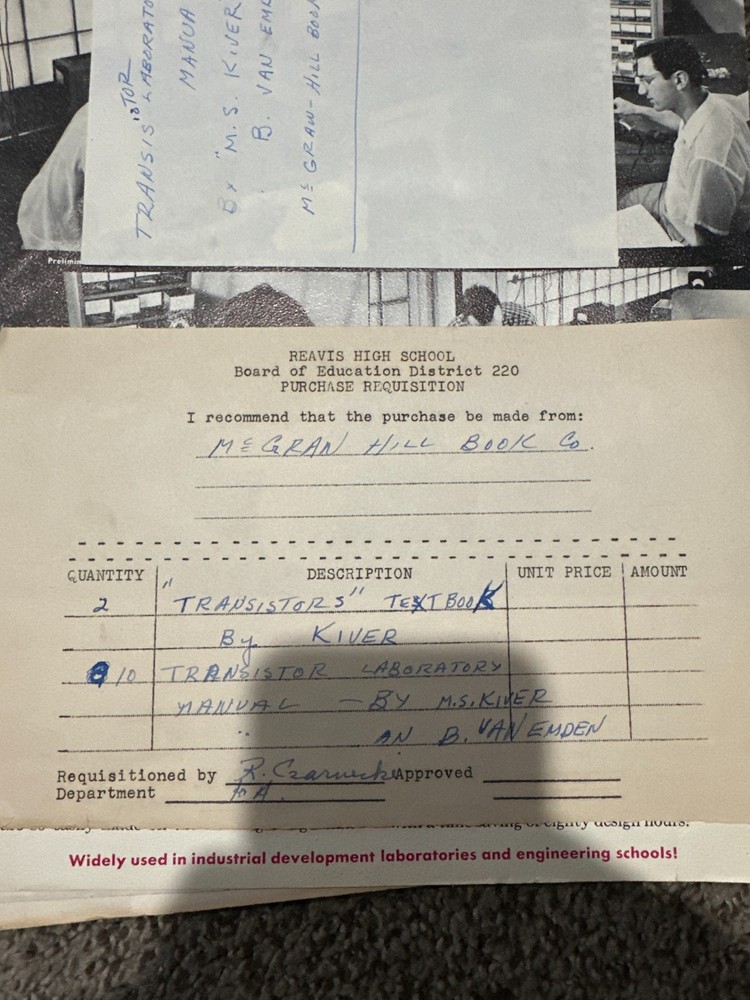 TRANSISTOR LABORATO
MANUA
By "M.S. KIVER
B. VAN EME
McGRAW-HILL BOOK
Prelimin
REAVIS HIGH SCHOOL
Board of Education District 220
PURCHASE REQUISITION
I recommend that the purchase be made from:
McGRAN HILL BOOK Co.
QUANTITY DESCRIPTION UNIT PRICE AMOUNT
2 "TRANSISTORS" TEXTBOOK
By KIVER
10 TRANSISTOR LABORATORY
MANUAL — BY M.S. KIVER
" AN B. VAN EMDEN
Requisitioned by R. Czarnecki Approved
Department
of eighty design hours.
Widely used in industrial development laboratories and engineering schools!